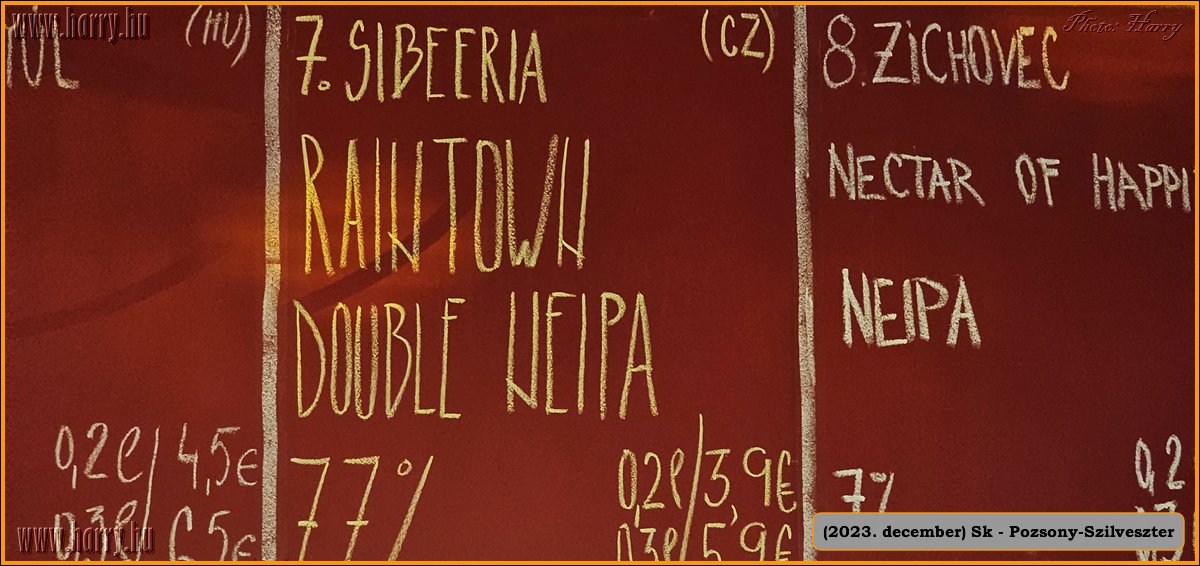 www.harry.hu
Photo: Harry
(HU)
0,2l/4,5€
0,3l/6,5€
7. SIBEERIA (CZ)
RAINTOWN
DOUBLE NEIPA
77%
0,2l/3,9€
0,3l/5,9€
8. ZICHOVEC
NECTAR OF HAPPI
NEIPA
7%
0,2
0,3
www.harry.hu
(2023. december) Sk - Pozsony-Szilveszter